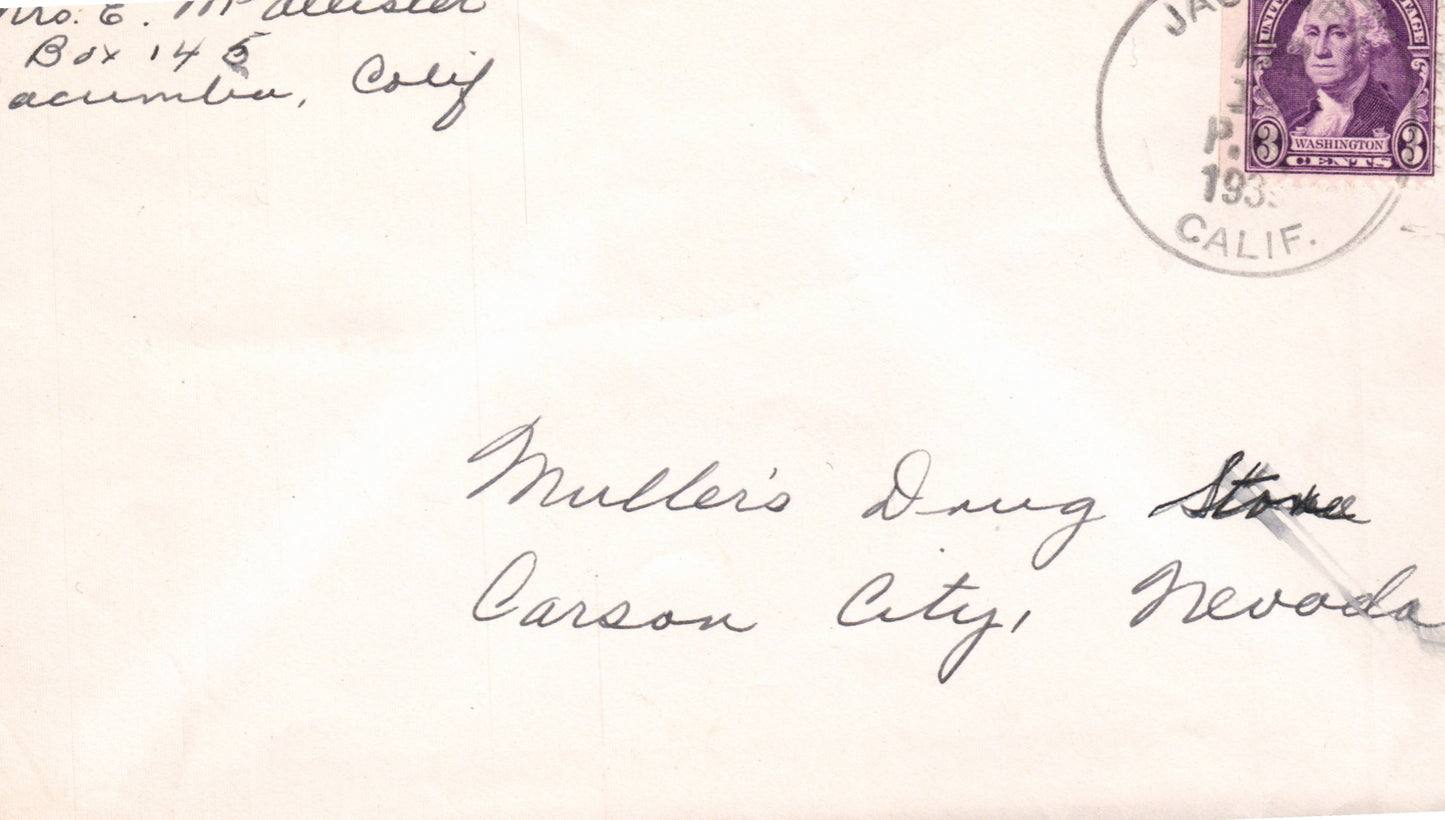 Mrs. E. McAllister
Box 145
acumba, Calif
JAC
P.
193
CALIF.
UNITED STATES POSTAGE
3 WASHINGTON 3
CENTS
Muller's Drug Store
Carson City, Nevada